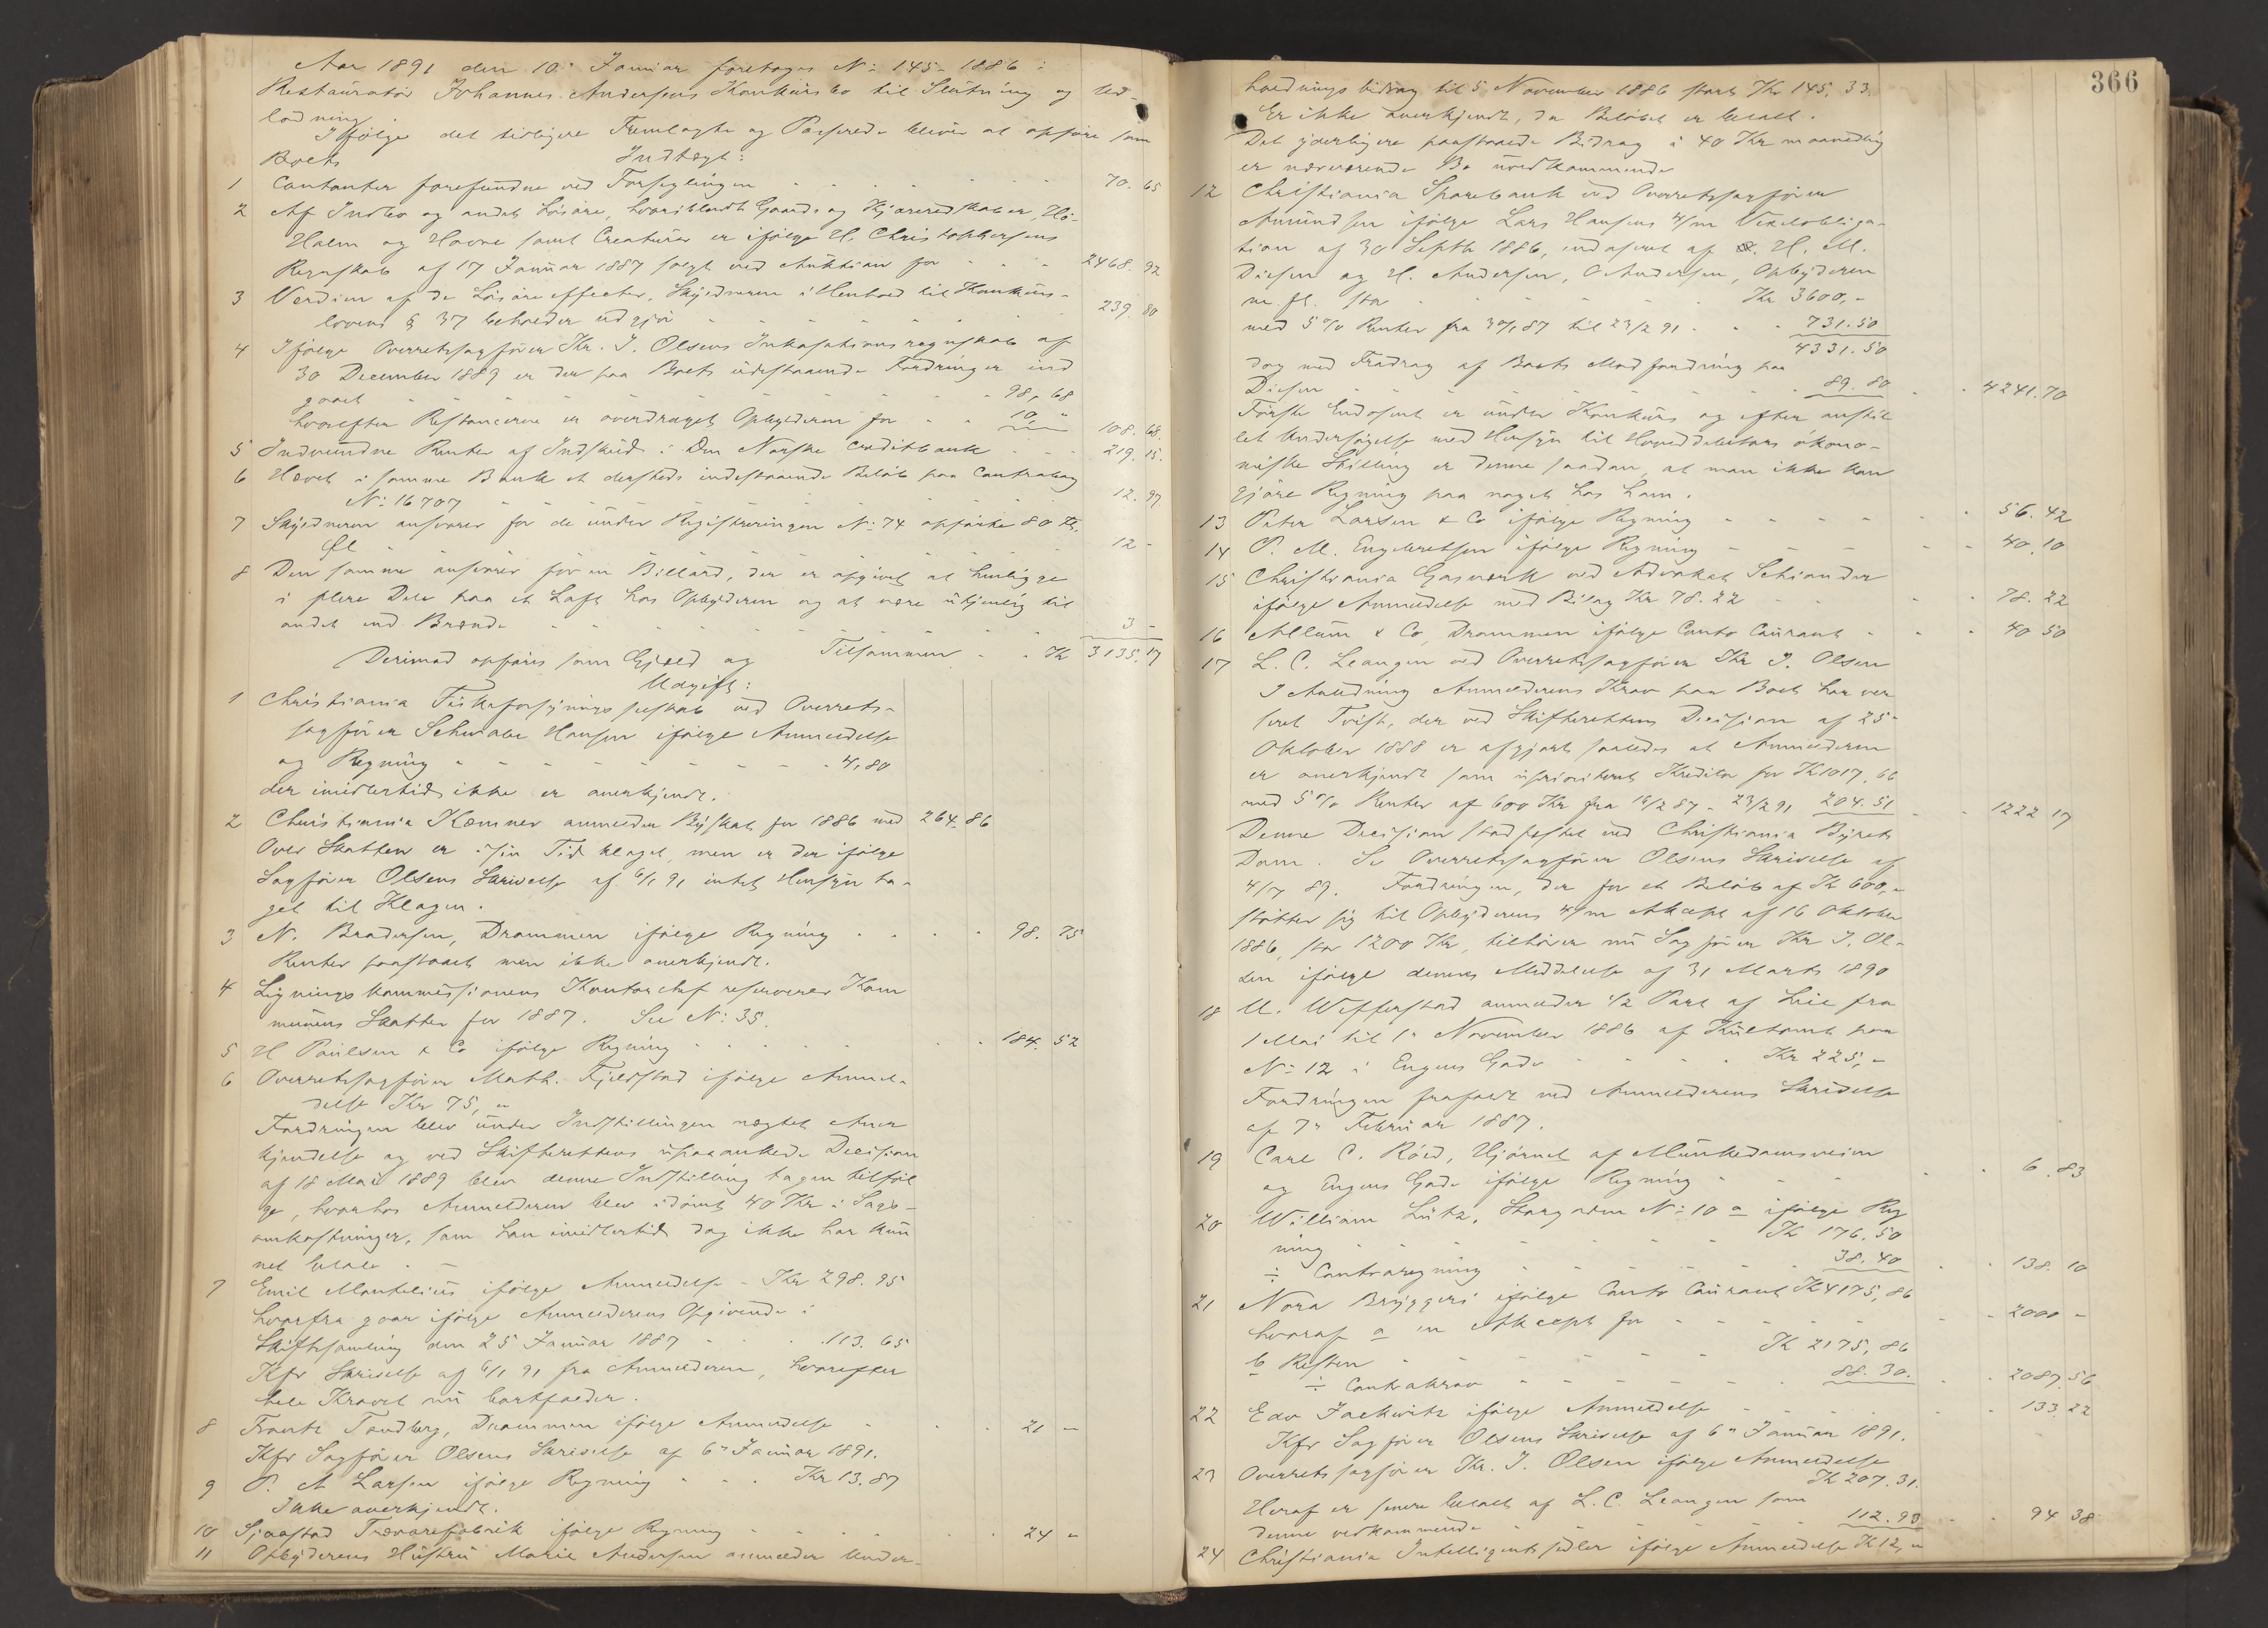 Aar 1891 den 10. Januar foretoges No 145-1886:
Restauratør Johannes Andersens Konkursbo til Slutning og Ud-
lodning.
Ifølge det tidligere Fremlagte og Passerede bliver at opføre som
Boets Indtægt:
1 Contanter forefundne ved Forseglingen - - - 70.65
2 Af Indbo og andet Løsøre, hvoriblandt Gaards og Kjøreredskaber, Hø-
Halm og Havre samt Creaturer er ifølge H. Christophersens
Regnskab af 17 Januar 1887 solgt ved Auktion for - - - 2468.92
3 Værdien af de Løsøreeffecter, Skyldneren i Henhold til Konkurs-
lovens § 37 beholder udgjør - - - 239.80
4 Ifølge Overretssagfører Kr. J. Olsens Inkassationsregnskab af
30 December 1889 er der paa Boets udestaaende Fordringer ind
gaaet - - - 98,68
hvorefter Restancerne er overdraget Opbyderen for - - 10 " 108.68.
5 Indvundne Renter af Indskud i Den Norske Creditbank - - - 219.15.
6 Hævet i samme Bank et dersteds indestaaende Beløb paa Contrabog
No 16707 - - - 12.97
7 Skyldneren ansvarer for de under Registreringen No 74 opførte 80 Fl.
Øl - - - 12 -
8 Den samme ansvarer for en Billard, der er opgivet at henligge
i flere Dele paa et Loft hos Opbyderen og at være utjenlig til
andet end Brænde - - - 3 -
Tilsammen - - Kr 3135.17
Derimod opføres som Gjæld og
Udgift:
1 Christiania Fiskeforsyningsselskab ved Overrets-
sagfører Schwabe Hansen ifølge Anmeldelse
og Regning - - - 4,80
der imidlertid ikke er anerkjendt.
2 Christiania Kæmner anmelder Byskat for 1886 med 264.86
Over Skatten er i sin Tid klaget, men er der ifølge
Sagfører Olsens Skrivelse af 6/1 91 intet Hensyn ta-
get til Klagen.
3 N. Brodersen, Drammen ifølge Regning - - - 98.75
Renter paastaaet men ikke anerkjendt.
4 Ligningskommissionens Kontorchef reserverer Kom
munens Skatter for 1887. Se No 35.
5 H Poulsen & Co ifølge Regning - - - 184.52
6 Overretssagfører Math. Fjeldstad ifølge Anmel-
delse Kr 75,"
Fordringen blev under Indstillingen nægtet Aner
kjendelse og ved Skifterettens upaaankede Decision
af 18 Mai 1889 blev denne Indstilling tagen tilføl
ge, hvorhos Anmelderen blev idømt 40 Kr i Sags-
omkostninger, som han imidlertid dog ikke har kun
net betale. -
7 Emil Montelius ifølge Anmeldelse - Kr 298.95
hvorfra gaar ifølge Anmelderens Opgivende i
Skiftesamling den 25 Januar 1887 - - - 113.65
Kfr Skrivelse af 6/1 91 fra Anmelderen, hvorefter
hele Kravet nu bortfalder.
8 Frantz Tandberg, Drammen ifølge Anmeldelse - - - 21 -
Kfr Sagfører Olsens Skrivelse af 6. Januar 1891.
9 P. A Larsen ifølge Regning - - - Kr 13.87
Ikke anerkjendt.
10 Sjaastad Trævarefabrik ifølge Regning - - - 24 -
11 Opbyderens Hustru Marie Andersen anmelder Under-
366
holdningsbidrag til 5 November 1886 stort Kr 145.33.
Er ikke anerkjendt, da Beløbet er betalt.
Det yderligere paastaaede Bidrag à 40 Kr maanedlig
er nærværende Bo uvedkommende
12 Christiania Sparebank ved Overretssagfører
Amundsen ifølge Lars Hansens 4/m Vexelobliga-
tion af 30 Septbr 1886, endosseret af H. M.
Diesen og H. Andersen, O Andersen, Opbyderen
m. fl. stor - - - Kr 3600,-
med 5 % Renter fra 30/1 87 til 23/2 91 - - - 731.50
4331.50
dog med Fradrag af Boets Modfordring paa
Diesen - - - 89.80 - - 4241.70
Første Endosent er under Konkurs og efter anstil
let Undersøgelse med Hensyn til Hoveddebitors økono-
miske Stilling er denne saadan at man ikke kan
gjøre Regning paa noget hos ham.
13 Peter Larsen & Co ifølge Regning - - - 56.42
14 P. M. Engebretsen ifølge Regning - - - 40.10
15 Christiania Gasværk ved Advokat Schiander
ifølge Anmeldelse med Bilag Kr 78.22 - - - 78.22
16 Allum & Co, Drammen ifølge Conto Courant - - - 40 50
17 L. C. Leangen ved Overretssagfører Kr J. Olsen
I Anledning Anmelderens Krav paa Boet har ver
seret Tvist, der ved Skifterettens Decision af 25-
Oktober 1888 er afgjort saaledes at Anmelderen
er anerkjendt som uprioriteret Kreditor for Kr 1017,66
med 5 % Renter af 600 Kr fra 18/2 87 - 23/2 91 204.51 - - 1222 17
Denne Decision stadfæstet ved Christiania Byrets
Dom. Se Overretssagfører Olsens Skrivelse af
4/7 89. Fordringen, der for et Beløb af Kr 600,-
støtter sig til Opbyderens 4/m Akcept af 16 Oktober
1886, stor 1200 Kr, tilhører nu Sagfører Kr J. Ol-
sen ifølge dennes Meddelelse af 31 Marts 1890
18 U. Wefferstad anmelder 1/2 Part af Leie fra
1 Mai til 1. November 1886 af Kultomt paa
No 12 i Engens Gade - - - Kr 225,-
Fordringen frafaldt ved Anmelderens Skrivelse
af 7. Februar 1887.
19 Carl C. Röed, Hjørnet af Munkedamsveien
og Engens Gade ifølge Regning - - - 6.83
20 William Lütz, Storgaden No 10 a ifølge Reg
ning - - - Kr 176.50
÷ Contraregning - - - 38.40 - - 138.10
21 Nora Bryggeri ifølge Conto Courant Kr 4175,86
hvoraf a en Akcept for - - - 2000 -
b Resten - - - Kr 2175,86
÷ Contrakrav - - - 88.30. - - 2087.56
22 Edv Jackwitz ifølge Anmeldelse - - - 133.22
Kfr Sagfører Olsens Skrivelse af 6. Januar 1891.
23 Overretssagfører Kr. J. Olsen ifølge Anmeldelse
Kr 207.31.
Heraf er senere betalt af L. C. Leangen som
denne vedkommende - - - 112.93 - - 94 38
24 Christiania Intelligentssedler ifølge Anmeldelse Kr 12,-